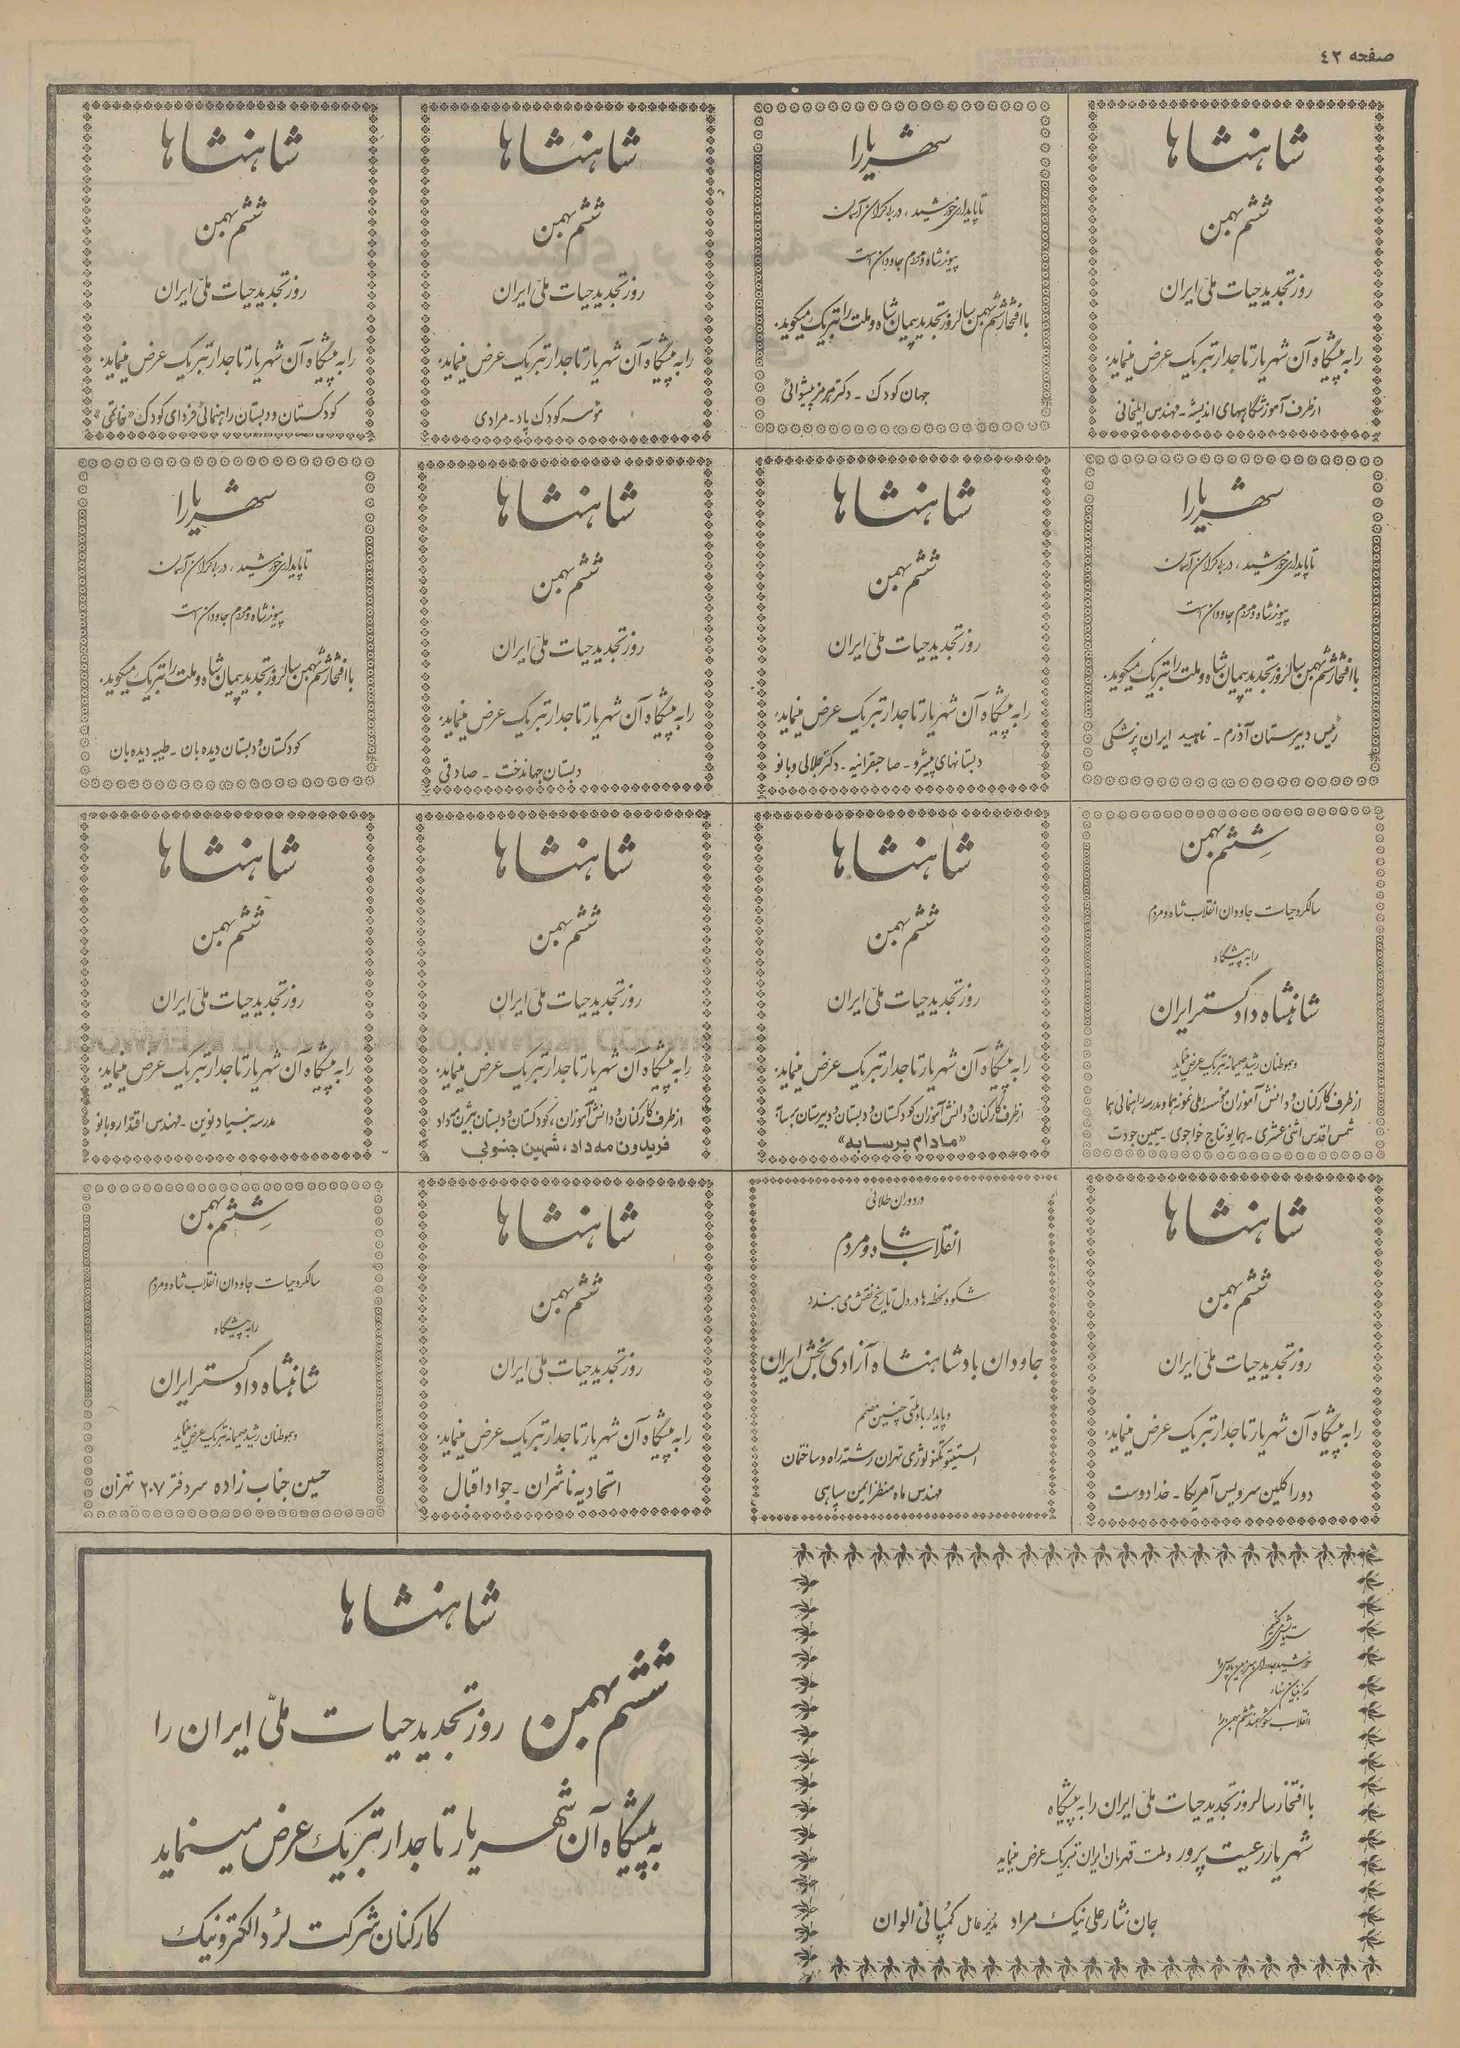 صفحه ۴۲
شاهنشاها
ششم بهمن
روز تجدید حیات ملی ایران
را به پیشگاه آن شهریار تاجدار تبریک عرض مینماید.
از طرف آموزشگاههای اندیشه - مهندس ایلخانی
شهریارا
تا پایداری خورشید، در بیکران آسمان
پیوند شاه و مردم جاودان است
با افتخار ششم بهمن سالروز تجدید پیمان شاه و ملت را تبریک میگوید.
جهان کودک - دکتر هرمز پیشوائی
شاهنشاها
ششم بهمن
روز تجدید حیات ملی ایران
را به پیشگاه آن شهریار تاجدار تبریک عرض مینماید.
موسسه کودک یاد - مرادی
شاهنشاها
ششم بهمن
روز تجدید حیات ملی ایران
را به پیشگاه آن شهریار تاجدار تبریک عرض مینماید.
کودکستان و دبستان راهنمائی فردای کودک
شهریارا
تا پایداری خورشید، در بیکران آسمان
پیوند شاه و مردم جاودان است
با افتخار ششم بهمن سالروز تجدید پیمان شاه و ملت را تبریک میگوید.
رئیس دبیرستان آذرم - ناهید ایران پزشکی
شاهنشاها
ششم بهمن
روز تجدید حیات ملی ایران
را به پیشگاه آن شهریار تاجدار تبریک عرض مینماید.
دبستانهای پیشرو - صاحبقرانیه - دکتر جلالی و بانو
شاهنشاها
ششم بهمن
روز تجدید حیات ملی ایران
را به پیشگاه آن شهریار تاجدار تبریک عرض مینماید.
دبستان جهاندخت - صادقی
شهریارا
تا پایداری خورشید، در بیکران آسمان
پیوند شاه و مردم جاودان است
با افتخار ششم بهمن سالروز تجدید پیمان شاه و ملت را تبریک میگوید.
کودکستان و دبستان دیده بان - طیبه دیده بان
ششم بهمن
سالگرد حیات جاودان انقلاب شاه و مردم
را به پیشگاه
شاهنشاه دادگستر ایران
و هموطنان رشید صمیمانه تبریک عرض مینماید
از طرف کارکنان و دانش آموزان مؤسسه ملی نمونه هما و مدرسه راهنمائی هما
شمس اقدس اثنی عشری - همایونتاج خواجوی - سیمین جودت
شاهنشاها
ششم بهمن
روز تجدید حیات ملی ایران
را به پیشگاه آن شهریار تاجدار تبریک عرض مینماید.
از طرف کارکنان و دانش آموزان کودکستان و دبستان و دبیرستان برسابه
«مادام برسابه»
شاهنشاها
ششم بهمن
روز تجدید حیات ملی ایران
را به پیشگاه آن شهریار تاجدار تبریک عرض مینماید.
از طرف کارکنان و دانش آموزان، کودکستان و دبستان بیژن مه داد
فریدون مه داد، شهین جنوبی
شاهنشاها
ششم بهمن
روز تجدید حیات ملی ایران
را به پیشگاه آن شهریار تاجدار تبریک عرض مینماید.
مدرسه بنیاد نوین - مهندس اقتدار و بانو
شاهنشاها
ششم بهمن
روز تجدید حیات ملی ایران
را به پیشگاه آن شهریار تاجدار تبریک عرض مینماید.
دوراکلین سرویس آمریکا - خدادوست
در دوران طلائی
انقلاب شاه و مردم
شکوه لحظه ها در دل تاریخ نقش می بندد
جاودان باد شاهنشاه آزادی بخش ایران
و پایدار باد ملتی چنین مصمم
انستیتو تکنولوژی تهران رشته راه و ساختمان
مهندس ماه منظر امین سپاهی
شاهنشاها
ششم بهمن
روز تجدید حیات ملی ایران
را به پیشگاه آن شهریار تاجدار تبریک عرض مینماید.
اتحادیه ناشران - جواد اقبال
ششم بهمن
سالگرد حیات جاودان انقلاب شاه و مردم
را به پیشگاه
شاهنشاه دادگستر ایران
و هموطنان رشید صمیمانه تبریک عرض مینماید
حسین جناب زاده سردفتر ۲۰۷ تهران
ستایش می کنیم
خورشید جاودان سرزمین پارسی را
که بنیان نهاد
انقلاب شکوهمند ششم بهمن را
با افتخار سالروز تجدید حیات ملی ایران را به پیشگاه
شهریار رعیت پرور و ملت قهرمان ایران تبریک عرض مینماید
جان نثار علی نیک مراد مدیر عامل کمپانی الوان
شاهنشاها
ششم بهمن روز تجدید حیات ملی ایران را
به پیشگاه آن شهریار تاجدار تبریک عرض مینماید
کارکنان شرکت لرد الکترونیک